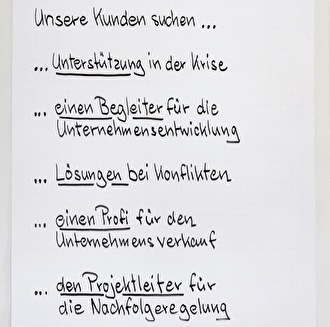 Unsere Kunden suchen ...
... Unterstützung in der Krise
... einen Begleiter für die
Unternehmensentwicklung
... Lösungen bei Konflikten
... einen Profi für den
Unternehmensverkauf
... den Projektleiter für
die Nachfolgeregelung